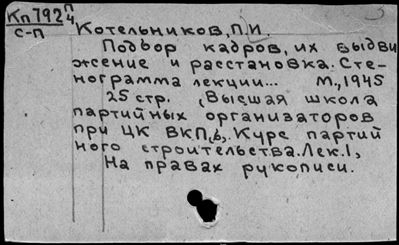 Кп 792 п/4
с-п
Котельников, П.И.
Подбор кадров, их выдви
жение и расстановка. Сте-
нограмма лекции... М., 1945
25 стр. (Высшая школа
партийных организаторов
при ЦК ВКП(б). Курс партий
ного строительства. Лек. 1)
На правах рукописи.